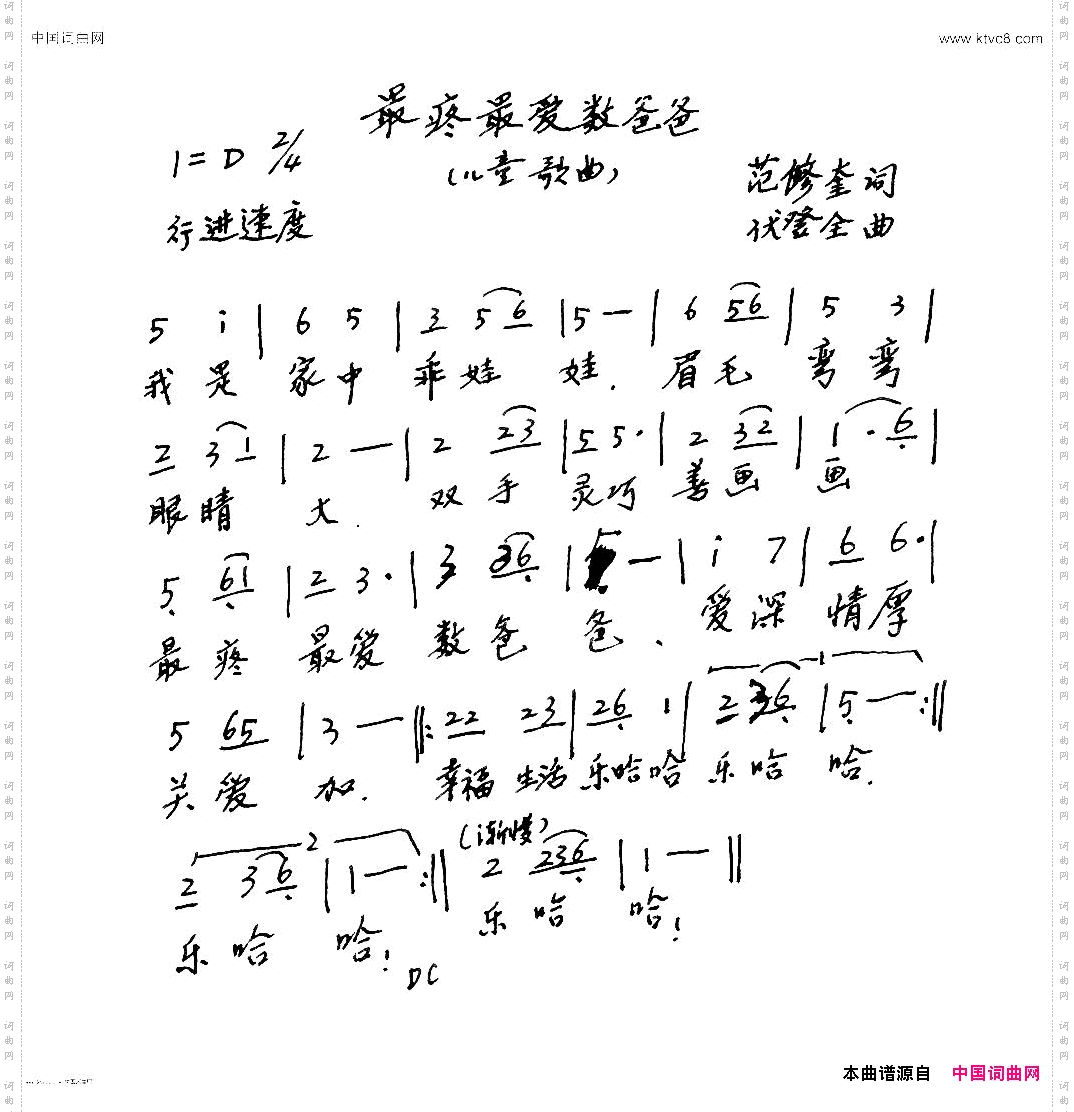 中国词曲网 www.ktvc8.com
最疼最爱数爸爸
1=D 2/4
(儿童歌曲)
范修奎词
行进速度
伏登全曲
5 i | 6 5 | 3 5 6 | 5 — | 6 56 | 5 3 |
我是 家中 乖娃 娃. 眉毛 弯弯
2 3 1 | 2 — | 2 23 | 5 5· | 2 32 | 1·6 |
眼睛 大. 双手 灵巧 善画 画
5 61 | 2 3· | 3 36 | — | i 7 | 6 6· |
最疼 最爱 数爸 爸、 爱深 情厚
5 65 | 3 — ‖: 22 23 | 26 1 | 2 36 | 5 — :‖
关爱 加. 幸福 生活 乐哈哈 乐哈 哈.
(渐慢)
2
2 3 6 | 1 — :‖ 2 236 | 1 — ‖
乐哈 哈! 乐哈 哈!
DC
本曲谱源自 中国词曲网